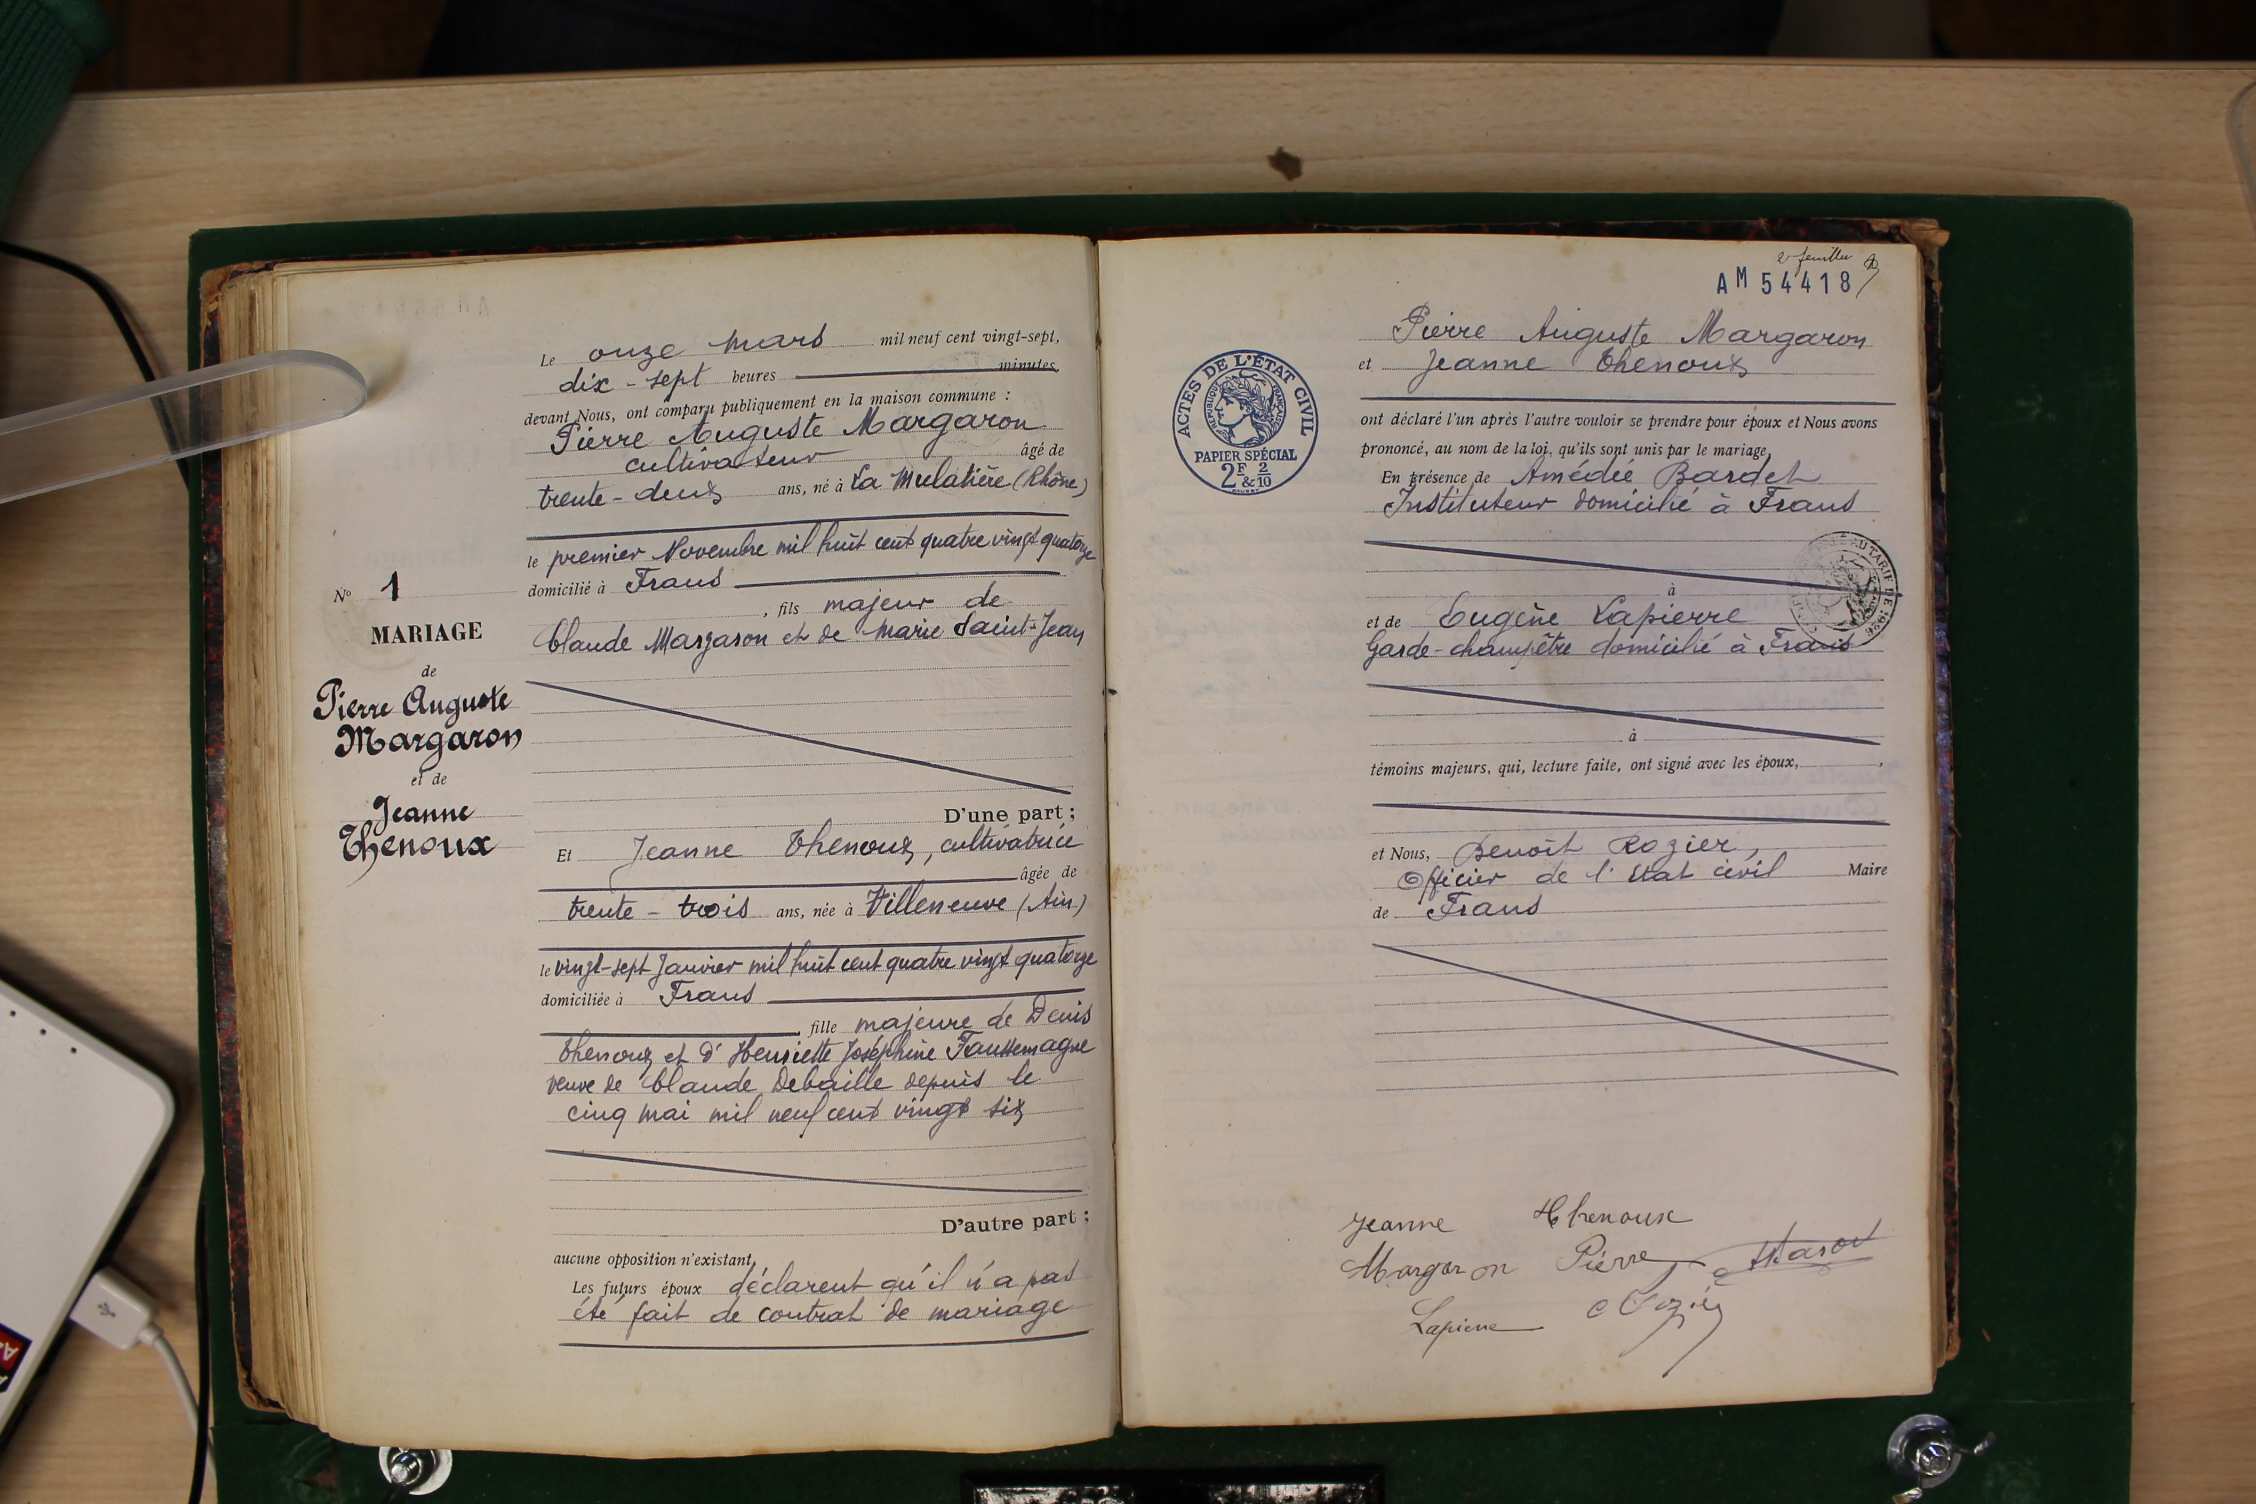 N° 1
MARIAGE
de
Pierre Auguste
Margaron
et de
Jeanne
Thenoux
Le onze mars mil neuf cent vingt-sept,
dix-sept heures minutes,
devant Nous, ont comparu publiquement en la maison commune :
Pierre Auguste Margaron
cultivateur âgé de
trente-deux ans, né à La Mulatière (Rhône)
le premier Novembre mil huit cent quatre vingt quatorze
domicilié à Frans
, fils majeur de
Claude Margaron et de Marie Saint-Jean
D'une part ;
Et Jeanne Thenoux, cultivatrice
âgée de
trente-trois ans, née à Villeneuve (Ain)
le vingt-sept Janvier mil huit cent quatre vingt quatorze
domiciliée à Frans
, fille majeure de Denis
Thenoux et d'Henriette Joséphine Faussemagne
veuve de Claude Debaille depuis le
cinq mai mil neuf cent vingt six
D'autre part ;
aucune opposition n'existant,
Les futurs époux déclarent qu'il n'a pas
été fait de contrat de mariage
2e feuillet
AM 54418
Pierre Auguste Margaron
et Jeanne Thenoux
ACTES DE L'ÉTAT CIVIL
RÉPUBLIQUE FRANÇAISE
PAPIER SPÉCIAL
2F & 2/10
ont déclaré l'un après l'autre vouloir se prendre pour époux et Nous avons
prononcé, au nom de la loi, qu'ils sont unis par le mariage,
En présence de Amédée Bardet
Instituteur domicilié à Frans
à
et de Eugène Lapierre
Garde-champêtre domicilié à Frans
à
témoins majeurs, qui, lecture faite, ont signé avec les époux, ,
et Nous, Benoît Rozier,
Officier de l'Etat civil Maire
de Frans
Jeanne Thenoux
Margaron Pierre
Lapierre Rozier